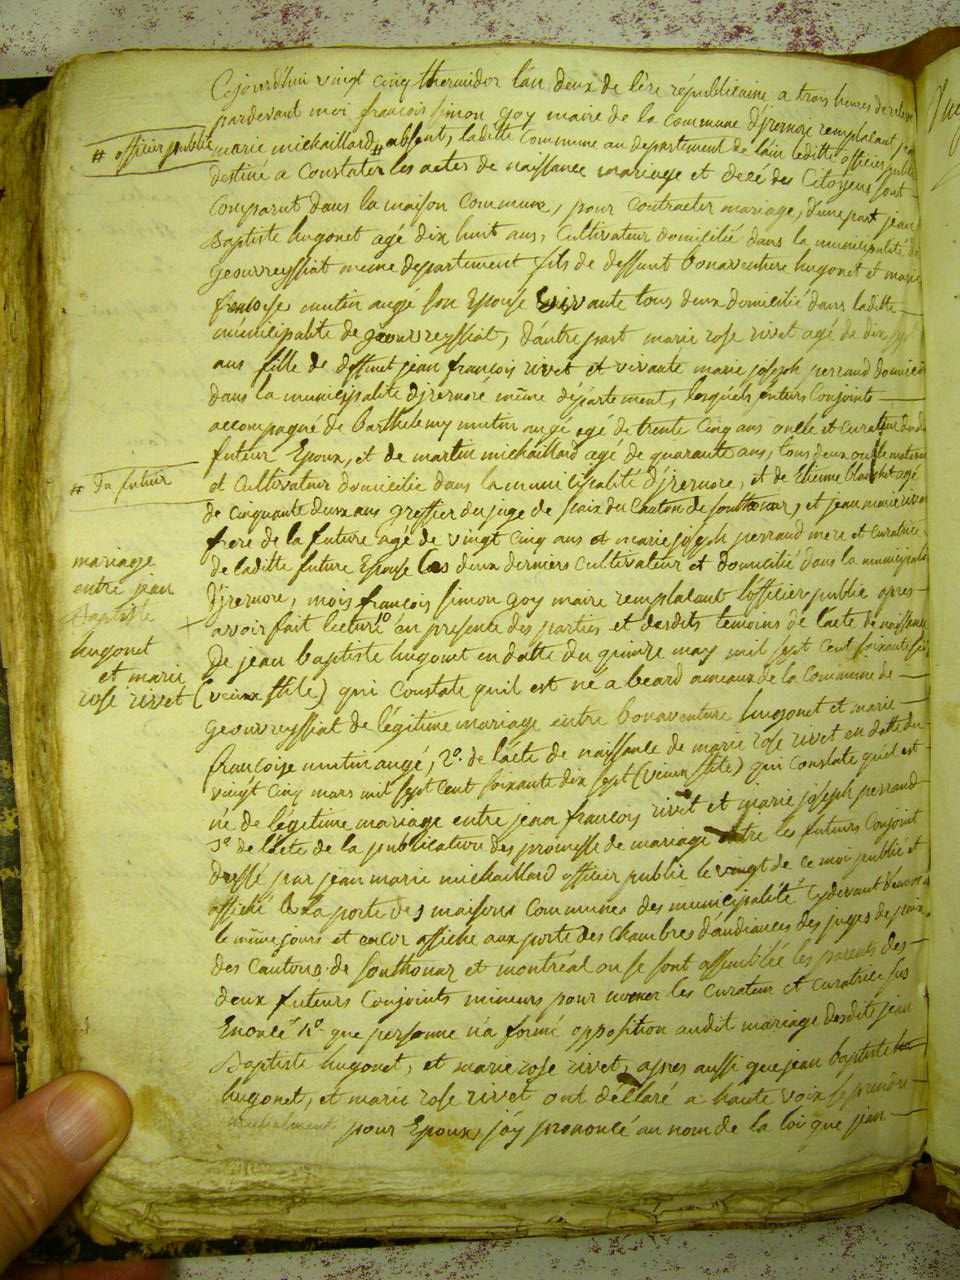 Cejourdhui vingt cinq thermidor l'an deux de l'ère républicaine a trois heures de relevée
pardevant moi françois simon goy maire de la commune d'jzernore remplaçant jean
marie michaillard # absent, laditte commune au departement de lain leditte officier public
# officier public
destiné a constater les actes de naissance mariage et décé des Citoyens sont
comparut dans la maison commune, pour contracter mariage, d'une part jean
Baptiste hugonet agé dix huit ans, cultivateur domicilié dans la municipalité de
geovreyssiat meme departement fils de deffunt bonaventure hugonet et marie
françoise mutin augé son Epouse survivante tous deux domicilié dans laditte
municipalité de geovreyssiat, d'autre part marie rose rivet agé de dix sept
ans fille de deffunt jean françois rivet et vivante marie joseph perraud domicilié
dans la municipalité d'jzernore même département, lesquels futurs conjoints
accompagné de Barthelemy mutin augé agé de trente cinq ans oncle et curateur dudit
futeur Epoux, et de martin michaillard agé de quarante ans, tous deux oncle maternel
# du futeur
et cultivateur domicilié dans la municipalité d'jzernore, et de Etienne blanchet agé
de cinquante deux ans greffier du juge de paix du canton de sonthonax, et jean marie rivet
frere de la future agé de vingt cinq ans et marie joseph perraud mere et curatrice
de laditte future Epouse les deux derniers cultivateur et domicilié dans la municipalité
d'jzernore, mois françois simon goy maire remplacant l'officier public apres
avoir fait lecture 1o en presente des parties et desdits temoins de l'acte de naissance
De jean baptiste hugonet en datte du quinze may mil sept cent soixante seize
(vieux stile) qui constate quil est né a beard ameaux de la commune de
geovreyssiat de légitime mariage entre bonaventure hugonet et marie
françoise mutin augé, 2o. de l'acte de naissance de marie rose rivet en datte du
vingt cinq mars mil sept cent soixante dix sept (vieux stile) qui constate quel est
né de légitime mariage entre jean françois rivet et marie joseph perraud
3o de l'acte de la publication des promesse de mariage entre les futurs conjoint
dressé par jean marie michaillard officier public le vingt de ce moi publié et
affiché à la porte des maisons communes des municipalité cydevant denommé
le même jours et encor affiche aux porte des chambres d'audiances des juges de paix
des cantons de sonthonax et montréal ou se sont assemblée les parents des
deux futeurs conjoints mineurs pour nomer les curateur et curatrice sus
Enoncé 4o. que personne n'a formé opposition audit mariage desdits jean
Baptiste hugonet, et marie rose rivet, apres aussi que jean baptiste
hugonet, et marie rose rivet ont déllaré a haute voix se prendre
mutuelement pour Epoux, j'ay prononcé au nom de la loi que jean
mariage
entre jean
Baptiste
hugonet
et marie
rose rivet